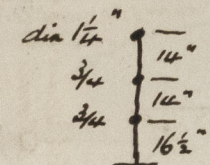 dia 1¼"
14"
¾
14"
¾
16½"